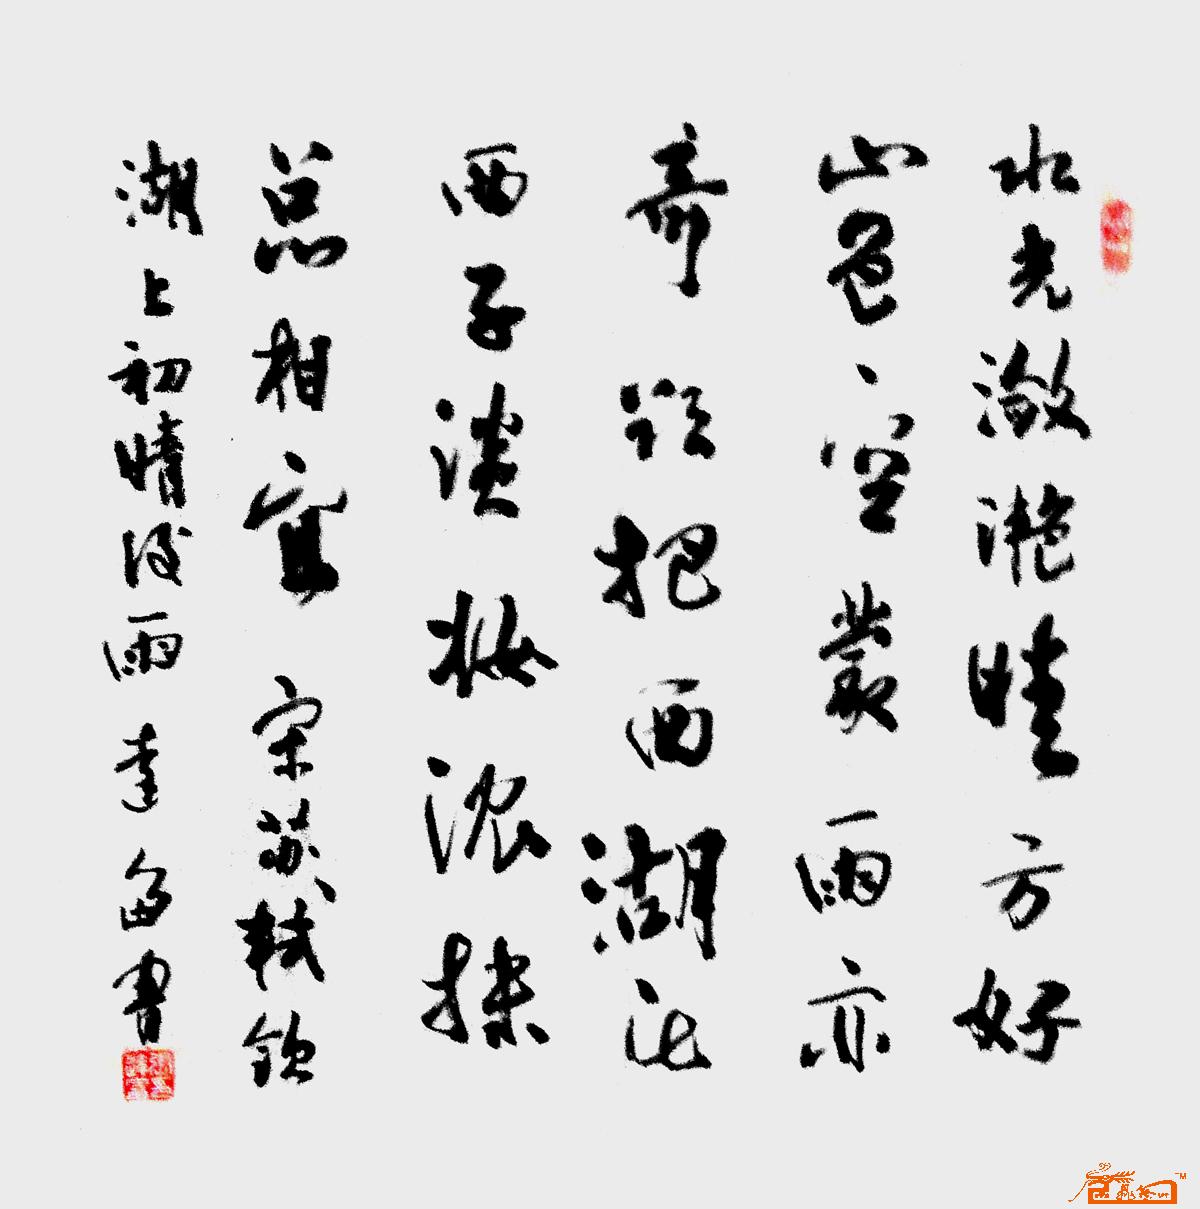 水光潋滟晴方好
山色空蒙雨亦
奇欲把西湖比
西子淡妆浓抹
总相宜 宋苏轼饮
湖上初晴后雨 达 书